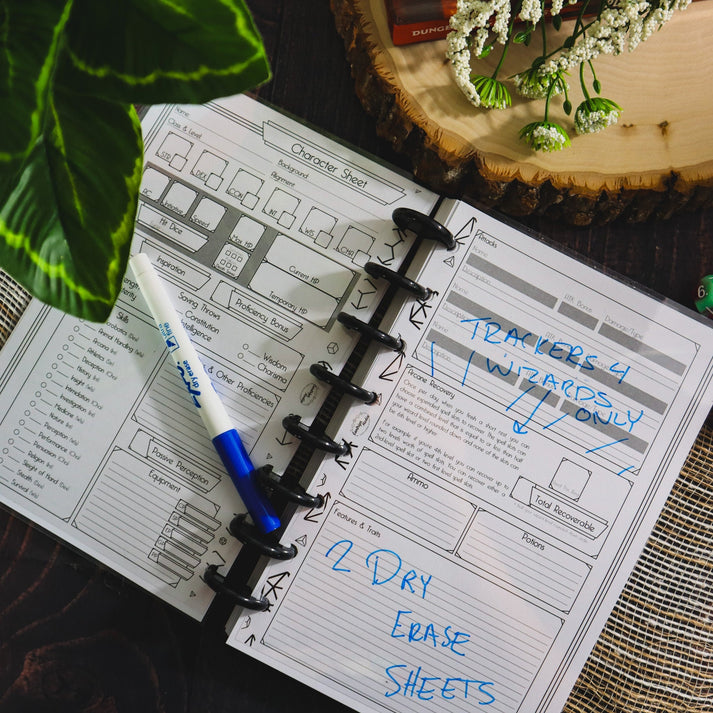 DUNG
Name:
Character Sheet
Class & Level
Background:
Alignment:
STR
DEX
CON
INT
WIS
CHR
AC
Initiative
Speed
Max HP
Current HP
Hit Dice
Temporary HP
Inspiration
Proficiency Bonus
Saving Throws
Constitution
Intelligence
Wisdom
Charisma
& Other Proficiencies
Skills
Acrobatics (Dex)
Animal Handling (Wis)
Arcana (Int)
Athletics (Str)
Deception (Cha)
History (Int)
Insight (Wis)
Intimidation (Cha)
Investigation (Int)
Medicine (Wis)
Nature (Int)
Perception (Wis)
Performance (Cha)
Persuasion (Cha)
Religion (Int)
Sleight of Hand (Dex)
Stealth (Dex)
Survival (Wis)
Passive Perception
Equipment
dry erase
Attacks
Name
Atk Bonus
Damage/Type
Description
Name
Description
TRACKERS 4
WIZARDS
ONLY
Arcane Recovery
Once per day when you finish a short rest, you can
choose expended spell slots to recover. The spell slots can
have a combined level that is equal to or less than half
your wizard level (rounded down), and none of the slots can
be 6th level or higher.
For example, if you're 4th level, you can recover up to
two levels worth of spell slots. You can recover either a
2nd-level spell slot or two first level spell slots.
Total Recoverable
Ammo
Potions
Features & Traits
2 DRY
ERASE
SHEETS
6.